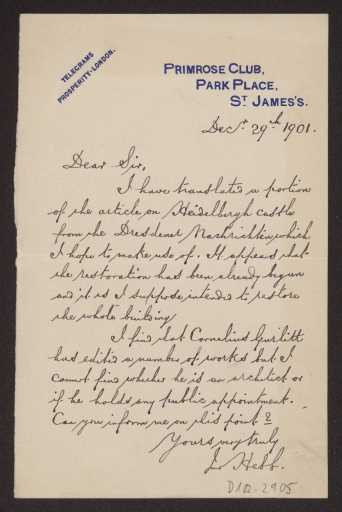 TELEGRAMS
PROSPERITY-LONDON.
PRIMROSE CLUB,
PARK PLACE,
ST JAMES'S.
Decr 29th 1901.
Dear Sir,
I have translated a portion
of the article on Heidelburgh castle
from the Dresdener Nachrichten, which
I hope to make use of. It appears that
the restoration has been already begun
and it is I suppose intended to restore
the whole building.
I find that Cornelius Gurlitt
has edited a number of works but I
cannot find whether he is an architect or
if he holds any public appointment.
Can you inform me on this point?
Yours very truly
J. Hebb.
2905